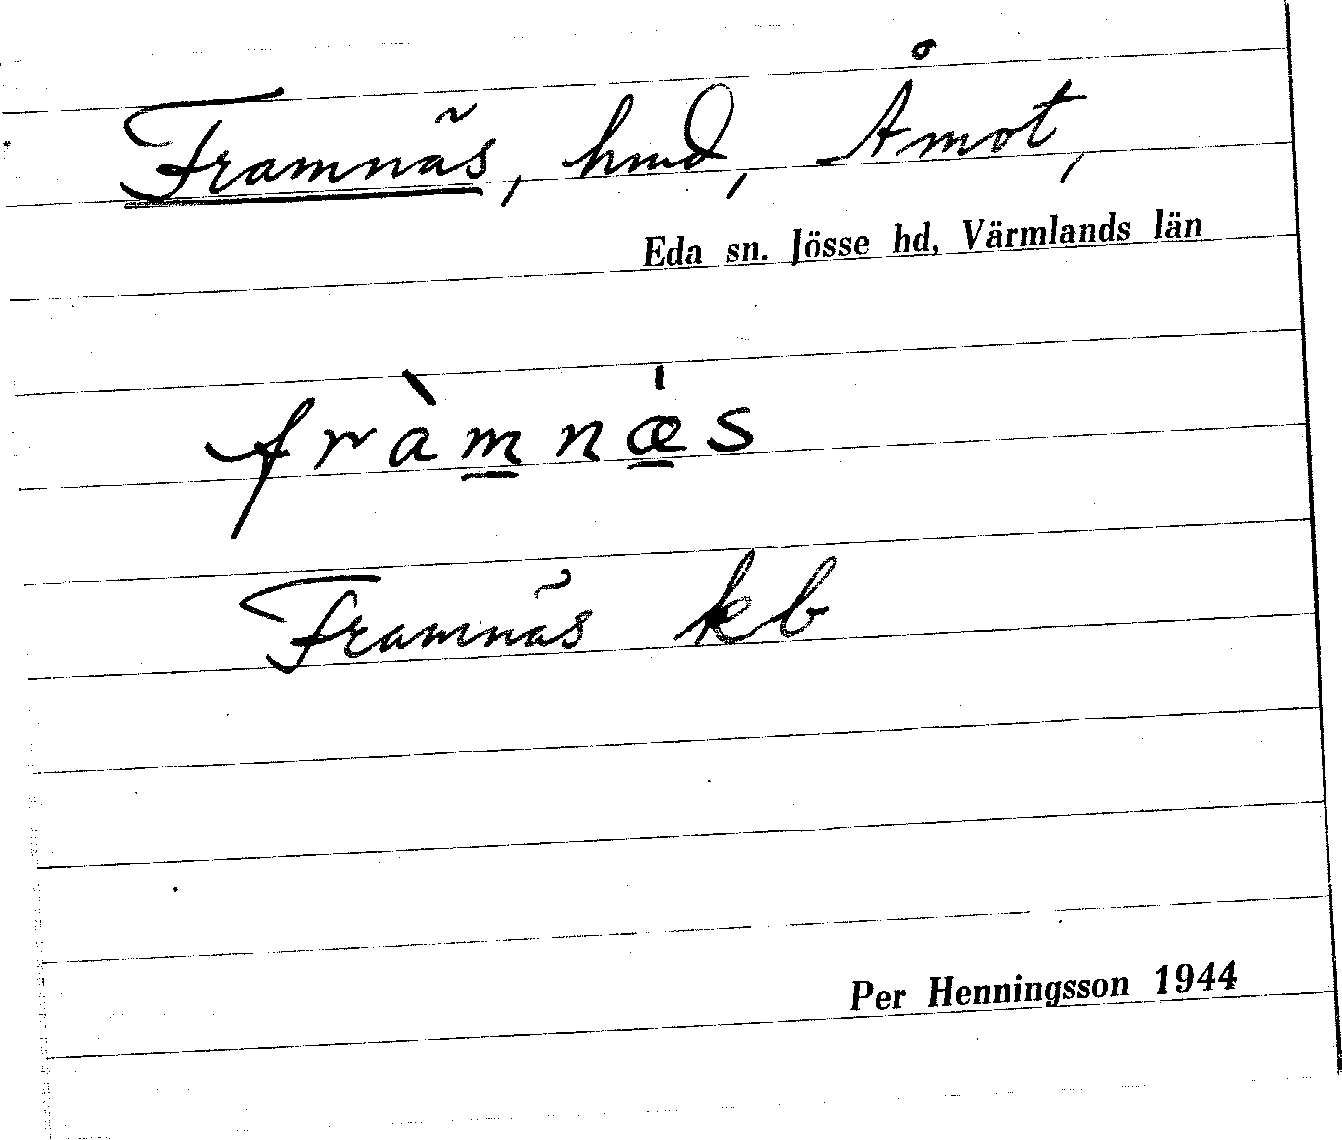 Framnäs, hmd, Åmot,
Eda sn. Jösse hd, Värmlands län
fràm̲næ̲̍s
Framnäs kb
Per Henningsson 1944